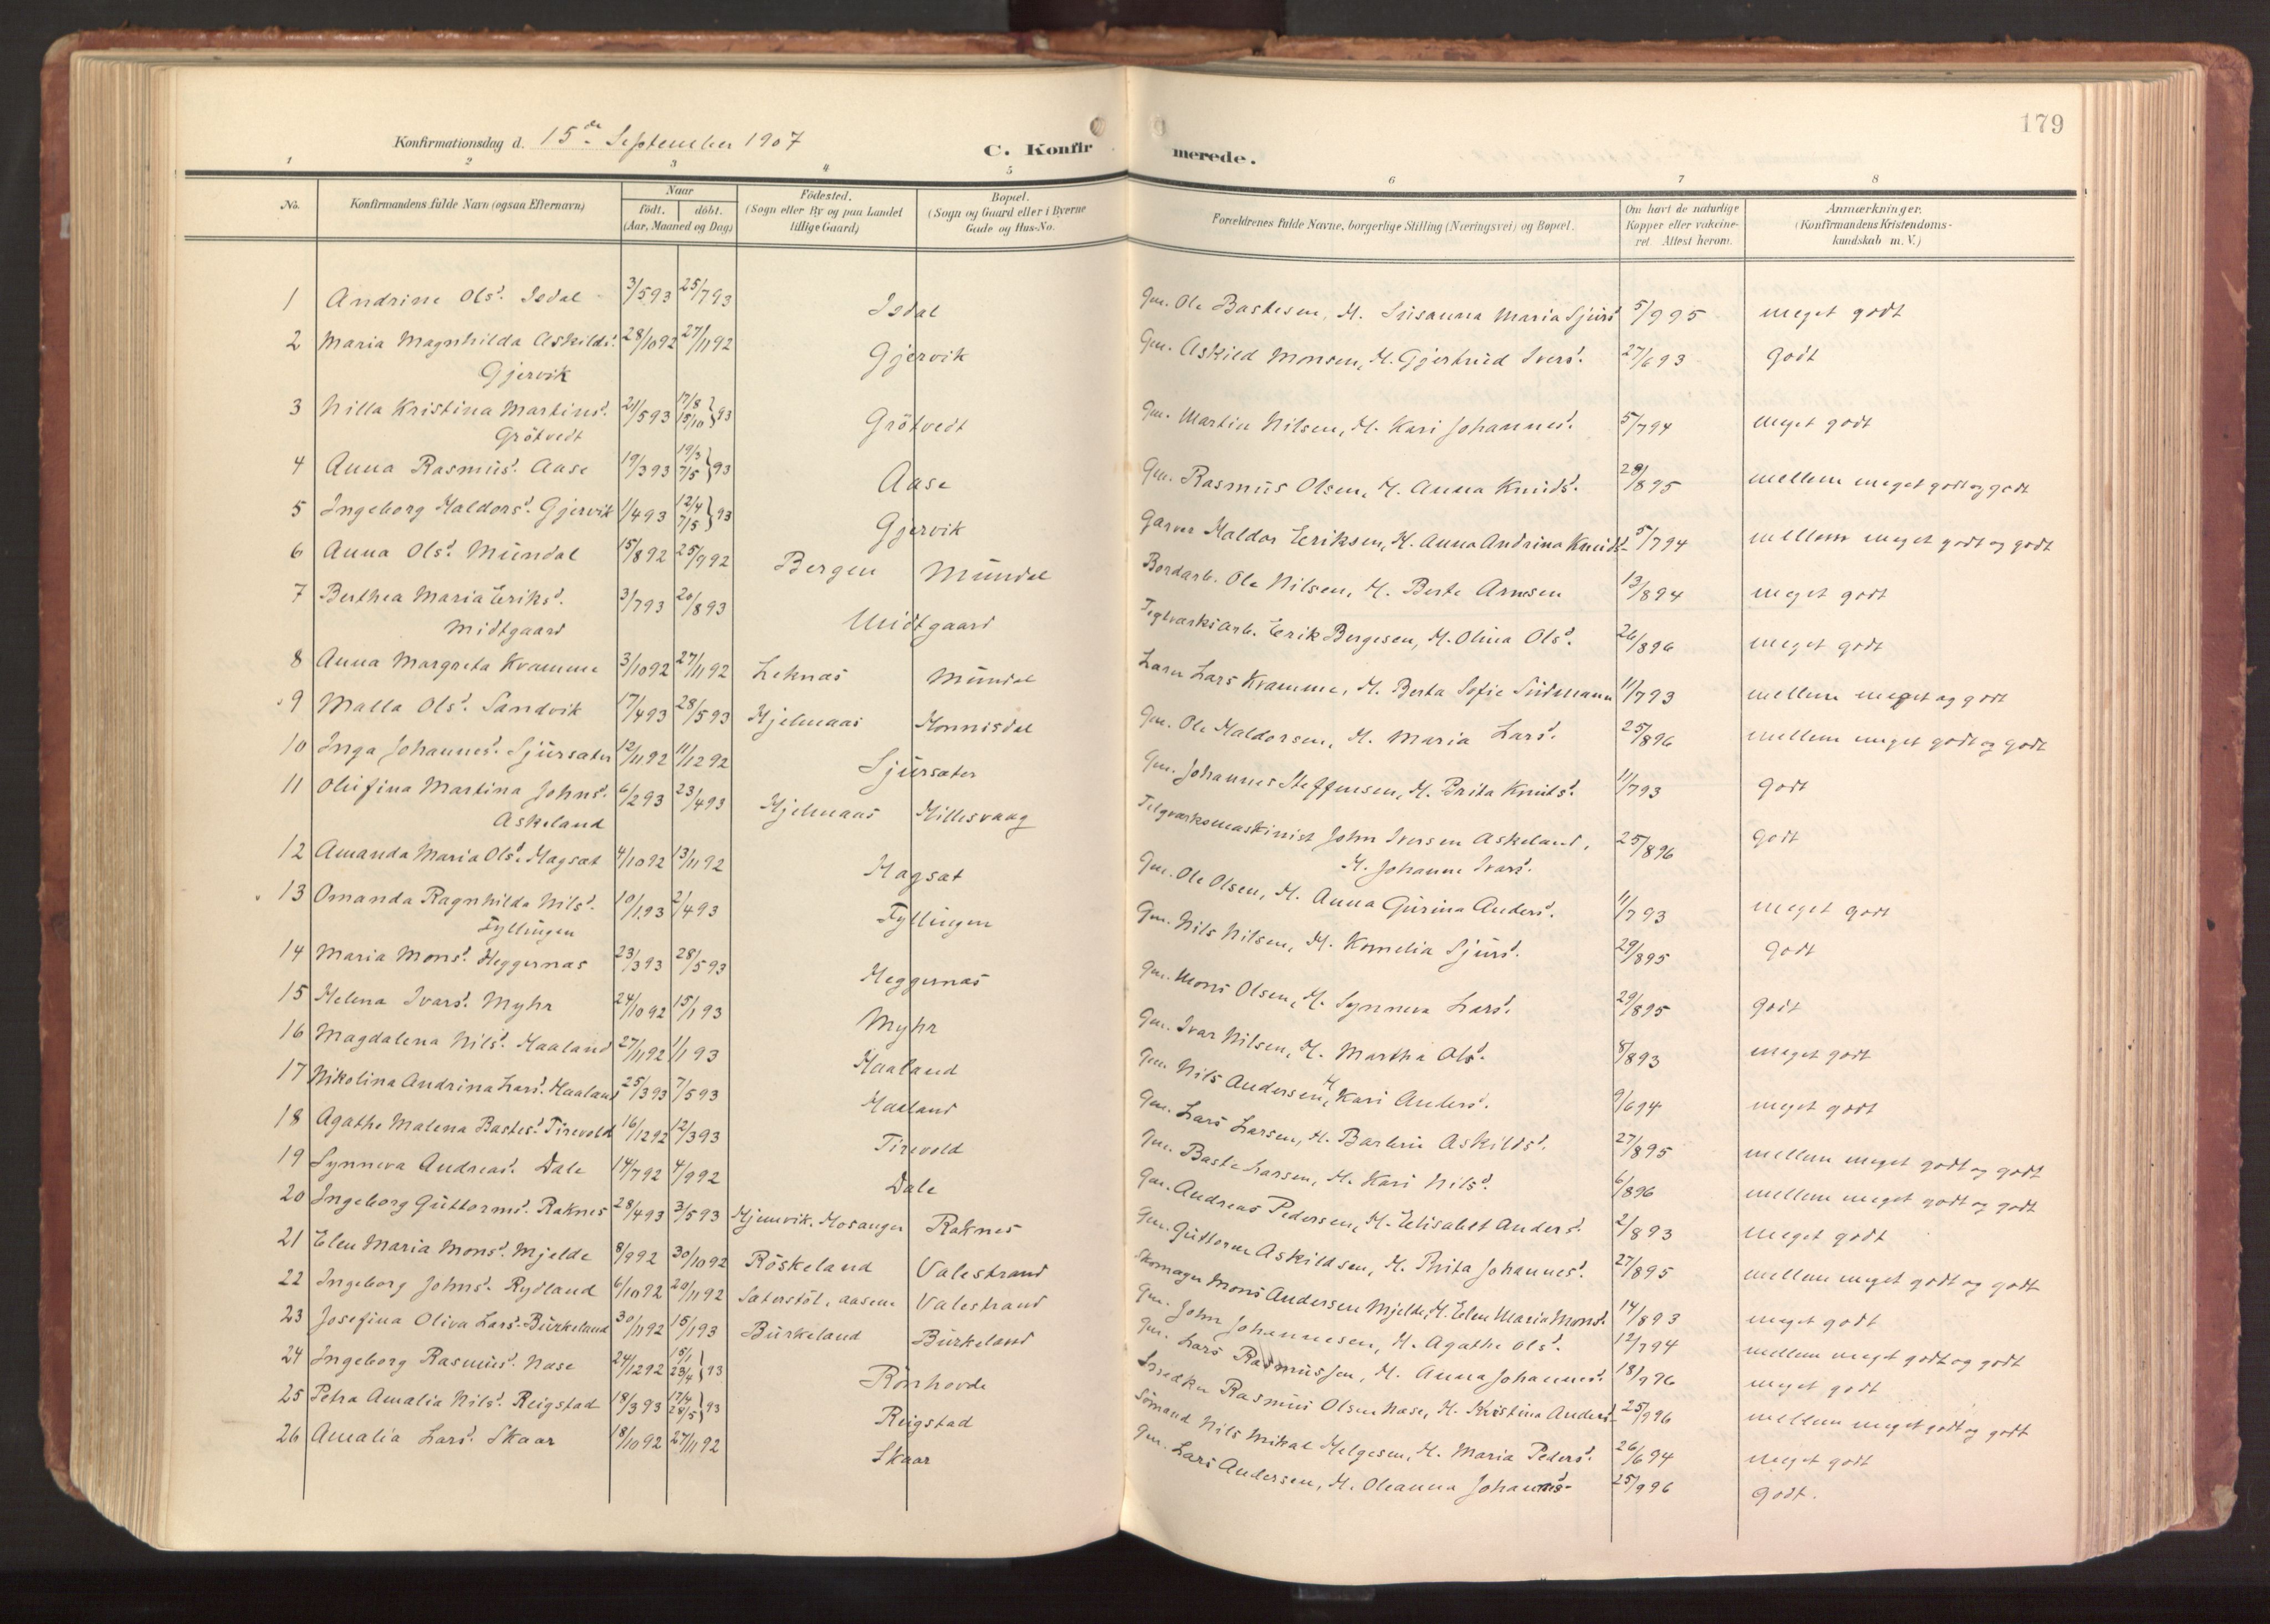 179
Konfirmationsdag d. 15de September 1907
C. Konfirmerede.
1 2 3 4 5 6 7 8
No. Konfirmandens fulde Navn (ogsaa Efternavn) Naar født. døbt. (Aar, Maaned og Dag) Födested. (Sogn eller By og paa Landet tillige Gaard) Bopæl. (Sogn og Gaard eller i Byerne Gade og Hus-No. Forældrenes fulde Navne, borgerlige Stilling (Næringsvei) og Bopæl. Om havt de naturlige Kopper eller vakcineret. Attest herom. Anmærkninger. (Konfirmandens Kristendomskundskab m. V.)
1 Andrine Olsd. Isdal 3/5 93 25/7 93 Isdal Gm. Ole Bastesen, H. Susanna Maria Sjursd 5/9 95 meget godt
2 Maria Magnhilda Askildsd. 28/10 92 27/11 92 Gjervik Gm. Askild Monsen, H. Gjertrud Iversd. 27/6 93 godt
Gjervik
3 Nilla Kristina Martinsd. 21/5 93 17/8 15/10 } 93 Grötvedt Gm. Martin Nilsen, H. Kari Johannesd. 5/7 94 meget godt
Grötvedt
4 Anna Rasmusd. Aase 19/3 93 19/3 7/5 } 93 Aase Gm. Rasmus Olsen, H. Anna Knudsd. 29/8 95 mellem meget godt og godt
5 Ingeborg Haldorsd. Gjervik 1/4 93 12/4 7/5 } 93 Gjervik Garver Haldor Eriksen, H. Anna Andrina Knudsd. 5/7 94 mellem meget godt og godt
6 Anna Olsd. Mundal 15/8 92 25/9 92 Bergen Mundal Bordarb. Ole Nilsen, H. Berte Arnesen 13/8 94 meget godt
7 Berthea Maria Eriksd. 3/7 93 20/8 93 Midtgaard Teglværksarb. Erik Bergesen, H. Olina Olsd. 26/8 96 meget godt
Midtgaard
8 Anna Margreta Kvamme 3/10 92 27/11 92 Leknæs Mundal Lærer Lars Kvamme, H. Berta Sofie 11/7 93 mellem meget og godt
9 Malla Olsd. Sandvik 17/4 93 28/5 93 Hjelmaas Monnisdal Gm. Ole Haldorsen, H. Maria Larsd. 25/8 96 mellem meget godt og godt
10 Inga Johannesd. Sjursæter 12/11 92 11/12 92 Sjursæter Gm. Johannes Steffensen, H. Brita Knutsd. 11/7 93 godt
11 Olufina Martina Johnsd. 6/2 93 23/4 93 Hjelmaas Hillesvaag Telgværksmaskinist John Iversen Askeland, 25/8 96 godt
Askeland H. Johanne Ivarsd.
12 Amanda Maria Olsd. Hagsæt 4/10 92 13/11 92 Hagsæt Gm. Ole Olsen, H. Anna Gurina Andersd. 11/7 93 meget godt
13 Omanda Ragnhilda Nilsd. 10/1 93 2/4 93 Fyllingen Gm. Nils Nilsen, H. Kornelia Sjursd. 29/8 95 godt
Fyllingen
14 Maria Monsd. Heggernæs 23/3 93 28/5 93 Heggernæs Gm. Mons Olsen, H. Synneva Larsd. 29/8 95 godt
15 Helena Ivarsd. Myhr 24/10 92 15/1 93 Myhr Gm. Ivar Nilsen, H. Martha Olsd. 8/8 93 meget godt
16 Magdalena Nilsd. Haaland 27/11 92 1/1 93 Haaland Gm. Nils Andersen, H Kari Andersd. 9/6 94 meget godt
17 Nikolina Andrina Larsd. Haaland 25/3 93 7/5 93 Haaland Gm. Lars Larsen, H. Barbru Askildsd. 27/8 95 mellem meget godt og godt
18 Agathe Malena Bastesd. Tirevold 16/12 92 12/3 93 Tirevold Gm. Baste Larsen, H. Kari Nilsd. 6/8 96 mellem meget godt og godt
19 Synneva Andreasd. Dale 14/7 92 4/9 92 Dale Gm. Andreas Pedersen, H. Elisabet Andersd. 2/8 93 meget godt
20 Ingeborg Guttormsd. Raknes 28/4 93 3/5 93 Hjemvik. Hosanger Raknes Gm. Guttorm Askildsen, H. Brita Johannesd. 27/8 95 mellem meget godt og godt
21 Elen Maria Monsd. Mjelde 8/9 92 30/10 92 Röskeland Valestrand Skomager Mons Andersen Mjelde, H. Elen Maria Monsd. 14/8 93 meget godt
22 Ingeborg Johnsd. Rydland 6/10 92 20/11 92 Sæterstöl, Aasene Valestrand Gm. John Johannesen, H. Agathe Olsd. 12/7 94 mellem meget godt og godt
23 Josefina Oliva Larsd. Burkeland 30/11 92 15/1 93 Burkeland Burkeland Gm. Lars Rasmussen, H. Anna Johannesd. 18/9 96 meget godt
24 Ingeborg Rasmusd. Nase 24/12 92 15/1 23/4 } 93 Rönhovde Snedker Rasmus Olsen Nase, H. Kristina Andersd. 25/9 96 mellem meget godt og godt
25 Petra Amalia Nilsd. Reigstad 18/3 93 17/4 28/5 } 93 Reigstad Sömand Nils Mikal Helgesen, H. Maria Pedersd. 26/6 94 meget godt
26 Amalia Larsd. Skaar 18/10 92 27/11 92 Skaar Gm. Lars Andersen, H. Oleanna Johannesd. 25/9 96 godt.